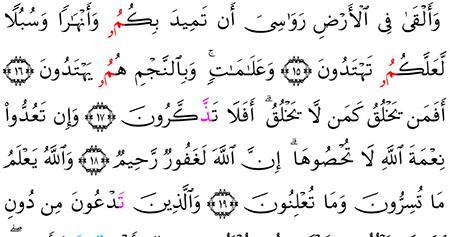 وَأَلۡقَىٰ فِي ٱلۡأَرۡضِ رَوَٰسِيَ أَن تَمِيدَ بِكُمُۥ وَأَنۡهَٰرٗا وَسُبُلٗا
لَّعَلَّكُمُۥ تَهۡتَدُونَ ١٥ وَعَلَٰمَٰتٖۚ وَبِٱلنَّجۡمِ هُمُۥ يَهۡتَدُونَ ١٦
أَفَمَن يَخۡلُقُ كَمَن لَّا يَخۡلُقُۗ أَفَلَا تَذَّكَّرُونَ ١٧ وَإِن تَعُدُّواْ
نِعۡمَةَ ٱللَّهِ لَا تُحۡصُوهَاۗ إِنَّ ٱللَّهَ لَغَفُورٞ رَّحِيمٞ ١٨ وَٱللَّهُ يَعۡلَمُ
مَا تُسِرُّونَ وَمَا تُعۡلِنُونَ ١٩ وَٱلَّذِينَ تَدۡعُونَ مِن دُونِ